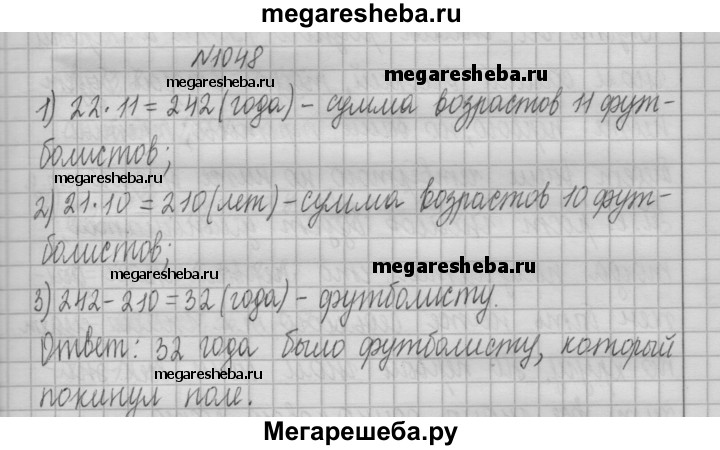 megaresheba.ru
№1048
megaresheba.ru
megaresheba.ru
1) 22·11=242(года)-сумма возрастов 11 фут-
болистов;
megaresheba.ru
megaresheba.ru
2) 21·10=210(лет)-сумма возрастов 10 фут-
болистов;
megaresheba.ru
megaresheba.ru
3) 242-210=32(года)- футболисту.
megaresheba.ru
Ответ: 32 года было футболисту, который
megaresheba.ru
megaresheba.ru
покинул поле.
Мегарешеба.ру